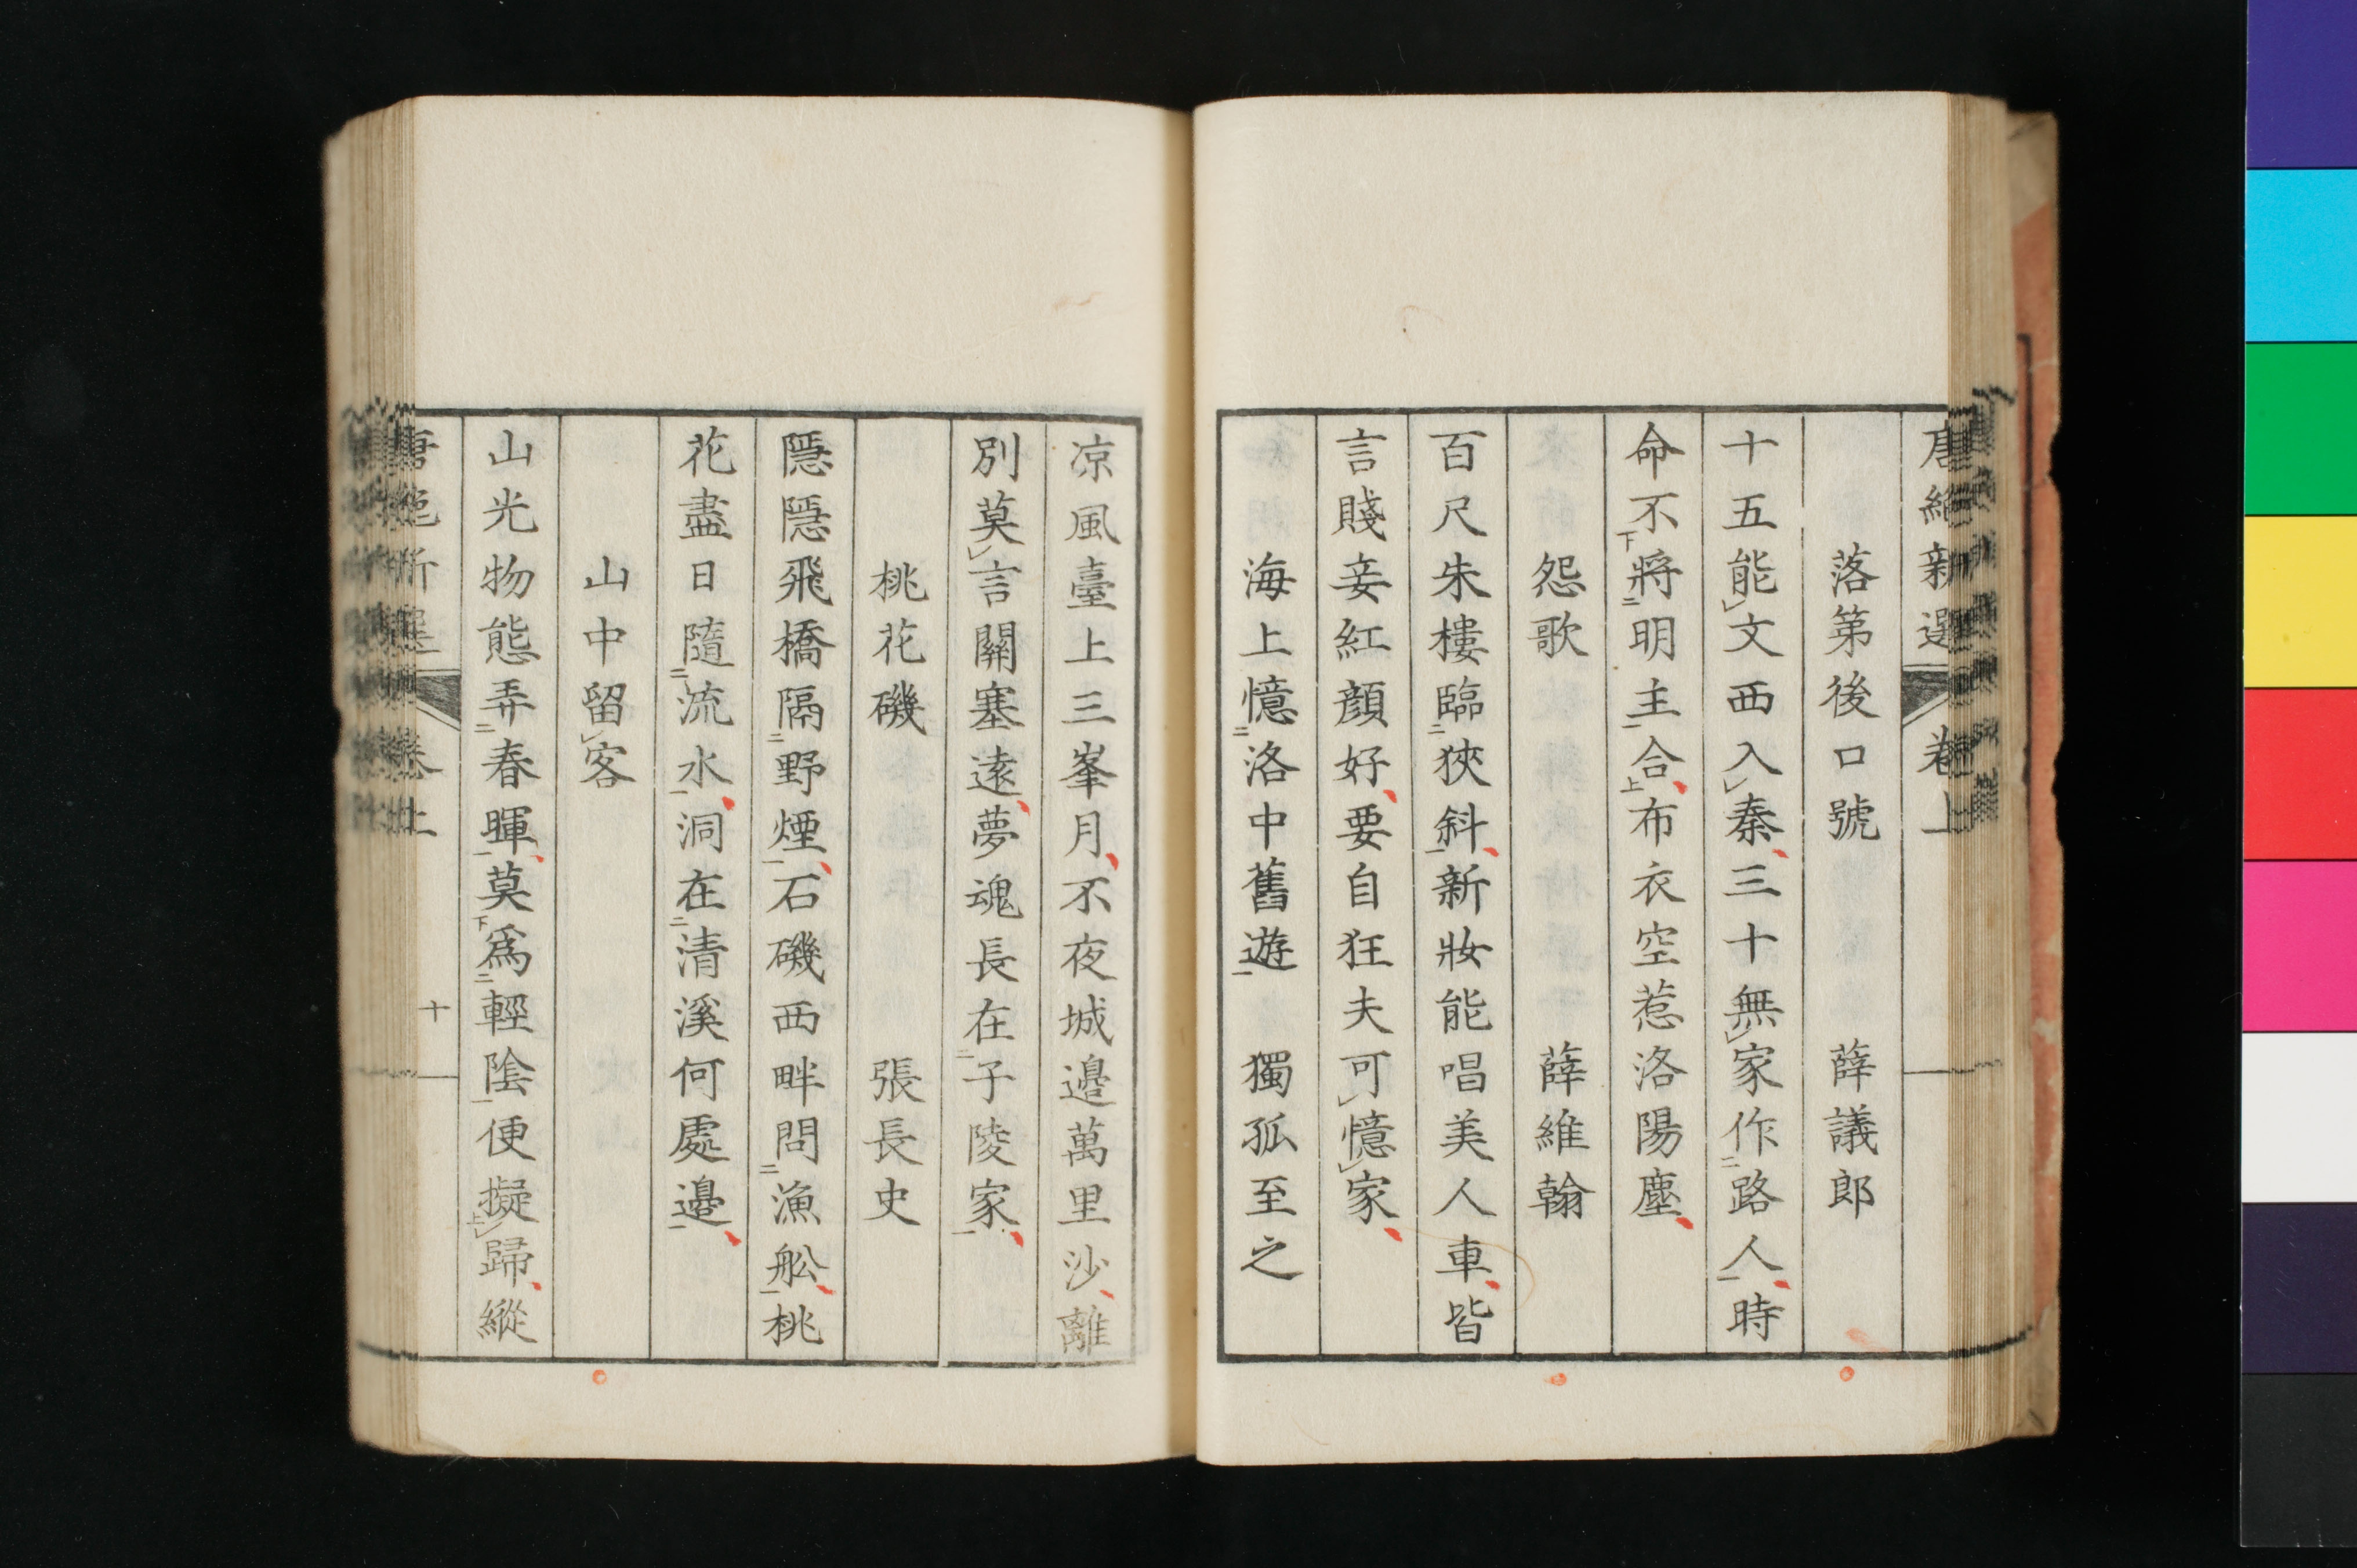 唐絶新選 卷上
落第後口號 薛議郎
十五能文西入秦三十無家作路人時
命不將明主合布衣空惹洛陽塵
怨歌 薛維翰
百尺朱樓臨狹斜新妝能唱美人車皆
言賤妾紅顔好要自狂夫可憶家
海上憶洛中舊遊 獨孤至之
凉風臺上三峯月不夜城邊萬里沙離
別莫言關塞遠夢魂長在子陵家
桃花磯 張長史
隱隱飛橋隔野煙石磯西畔問漁舩桃
花盡日隨流水洞在清溪何處邊
山中留客
山光物態弄春暉莫爲輕陰便擬歸縱
唐絶新選 卷上 十